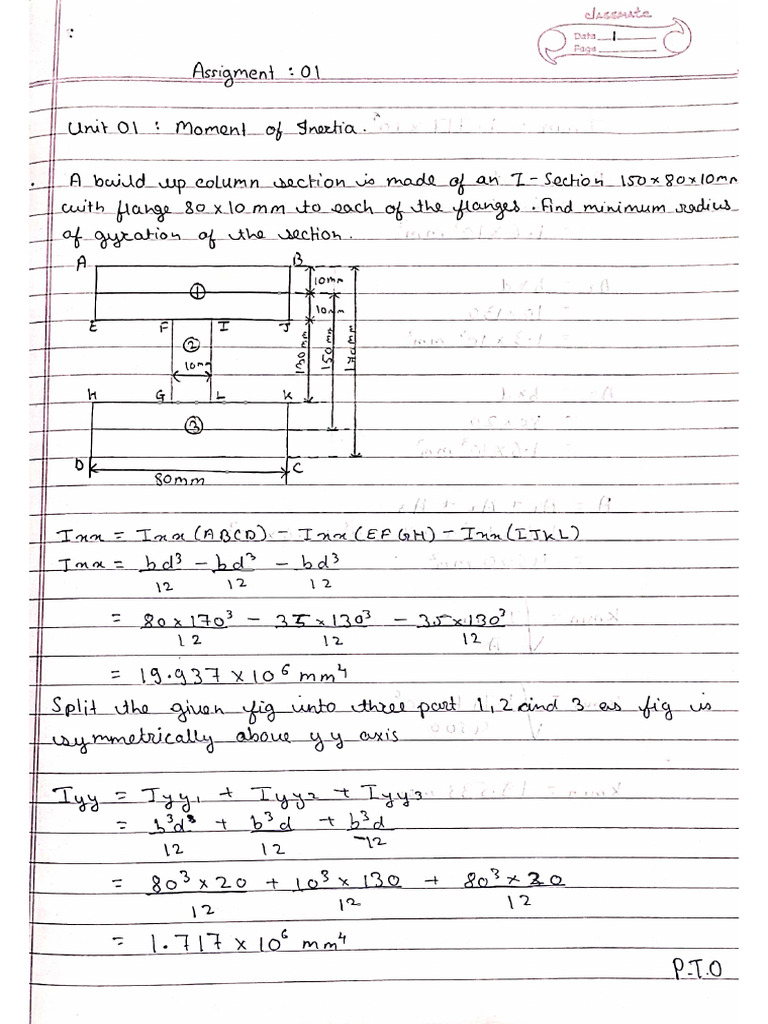 classmate
Date 1
Page
Assigment : 01
Unit 01 : Moment of Inertia.
A build up column section is made of an I-Section 150×80×10mm
with flange 80×10 mm to each of the flanges. find minimum radius
of gyration of the section.
A B
10mm
①
10mm
E F I J
②
10mm
130mm
150mm
170mm
H G L K
③
D C
80mm
Ixx = Ixx(ABCD) - Ixx(EFGH) - Ixx(IJKL)
Ixx = bd³/12 - bd³/12 - bd³/12
= 80×170³/12 - 35×130³/12 - 35×130³/12
= 19.937 × 10⁶ mm⁴
Split the given fig into three part 1, 2 and 3 as fig is
symmetrically above yy axis
Iyy = Iyy₁ + Iyy₂ + Iyy₃
= b³d/12 + b³d/12 + b³d/12
= 80³×20/12 + 10³×130/12 + 80³×20/12
= 1.717 × 10⁶ mm⁴
P.T.O